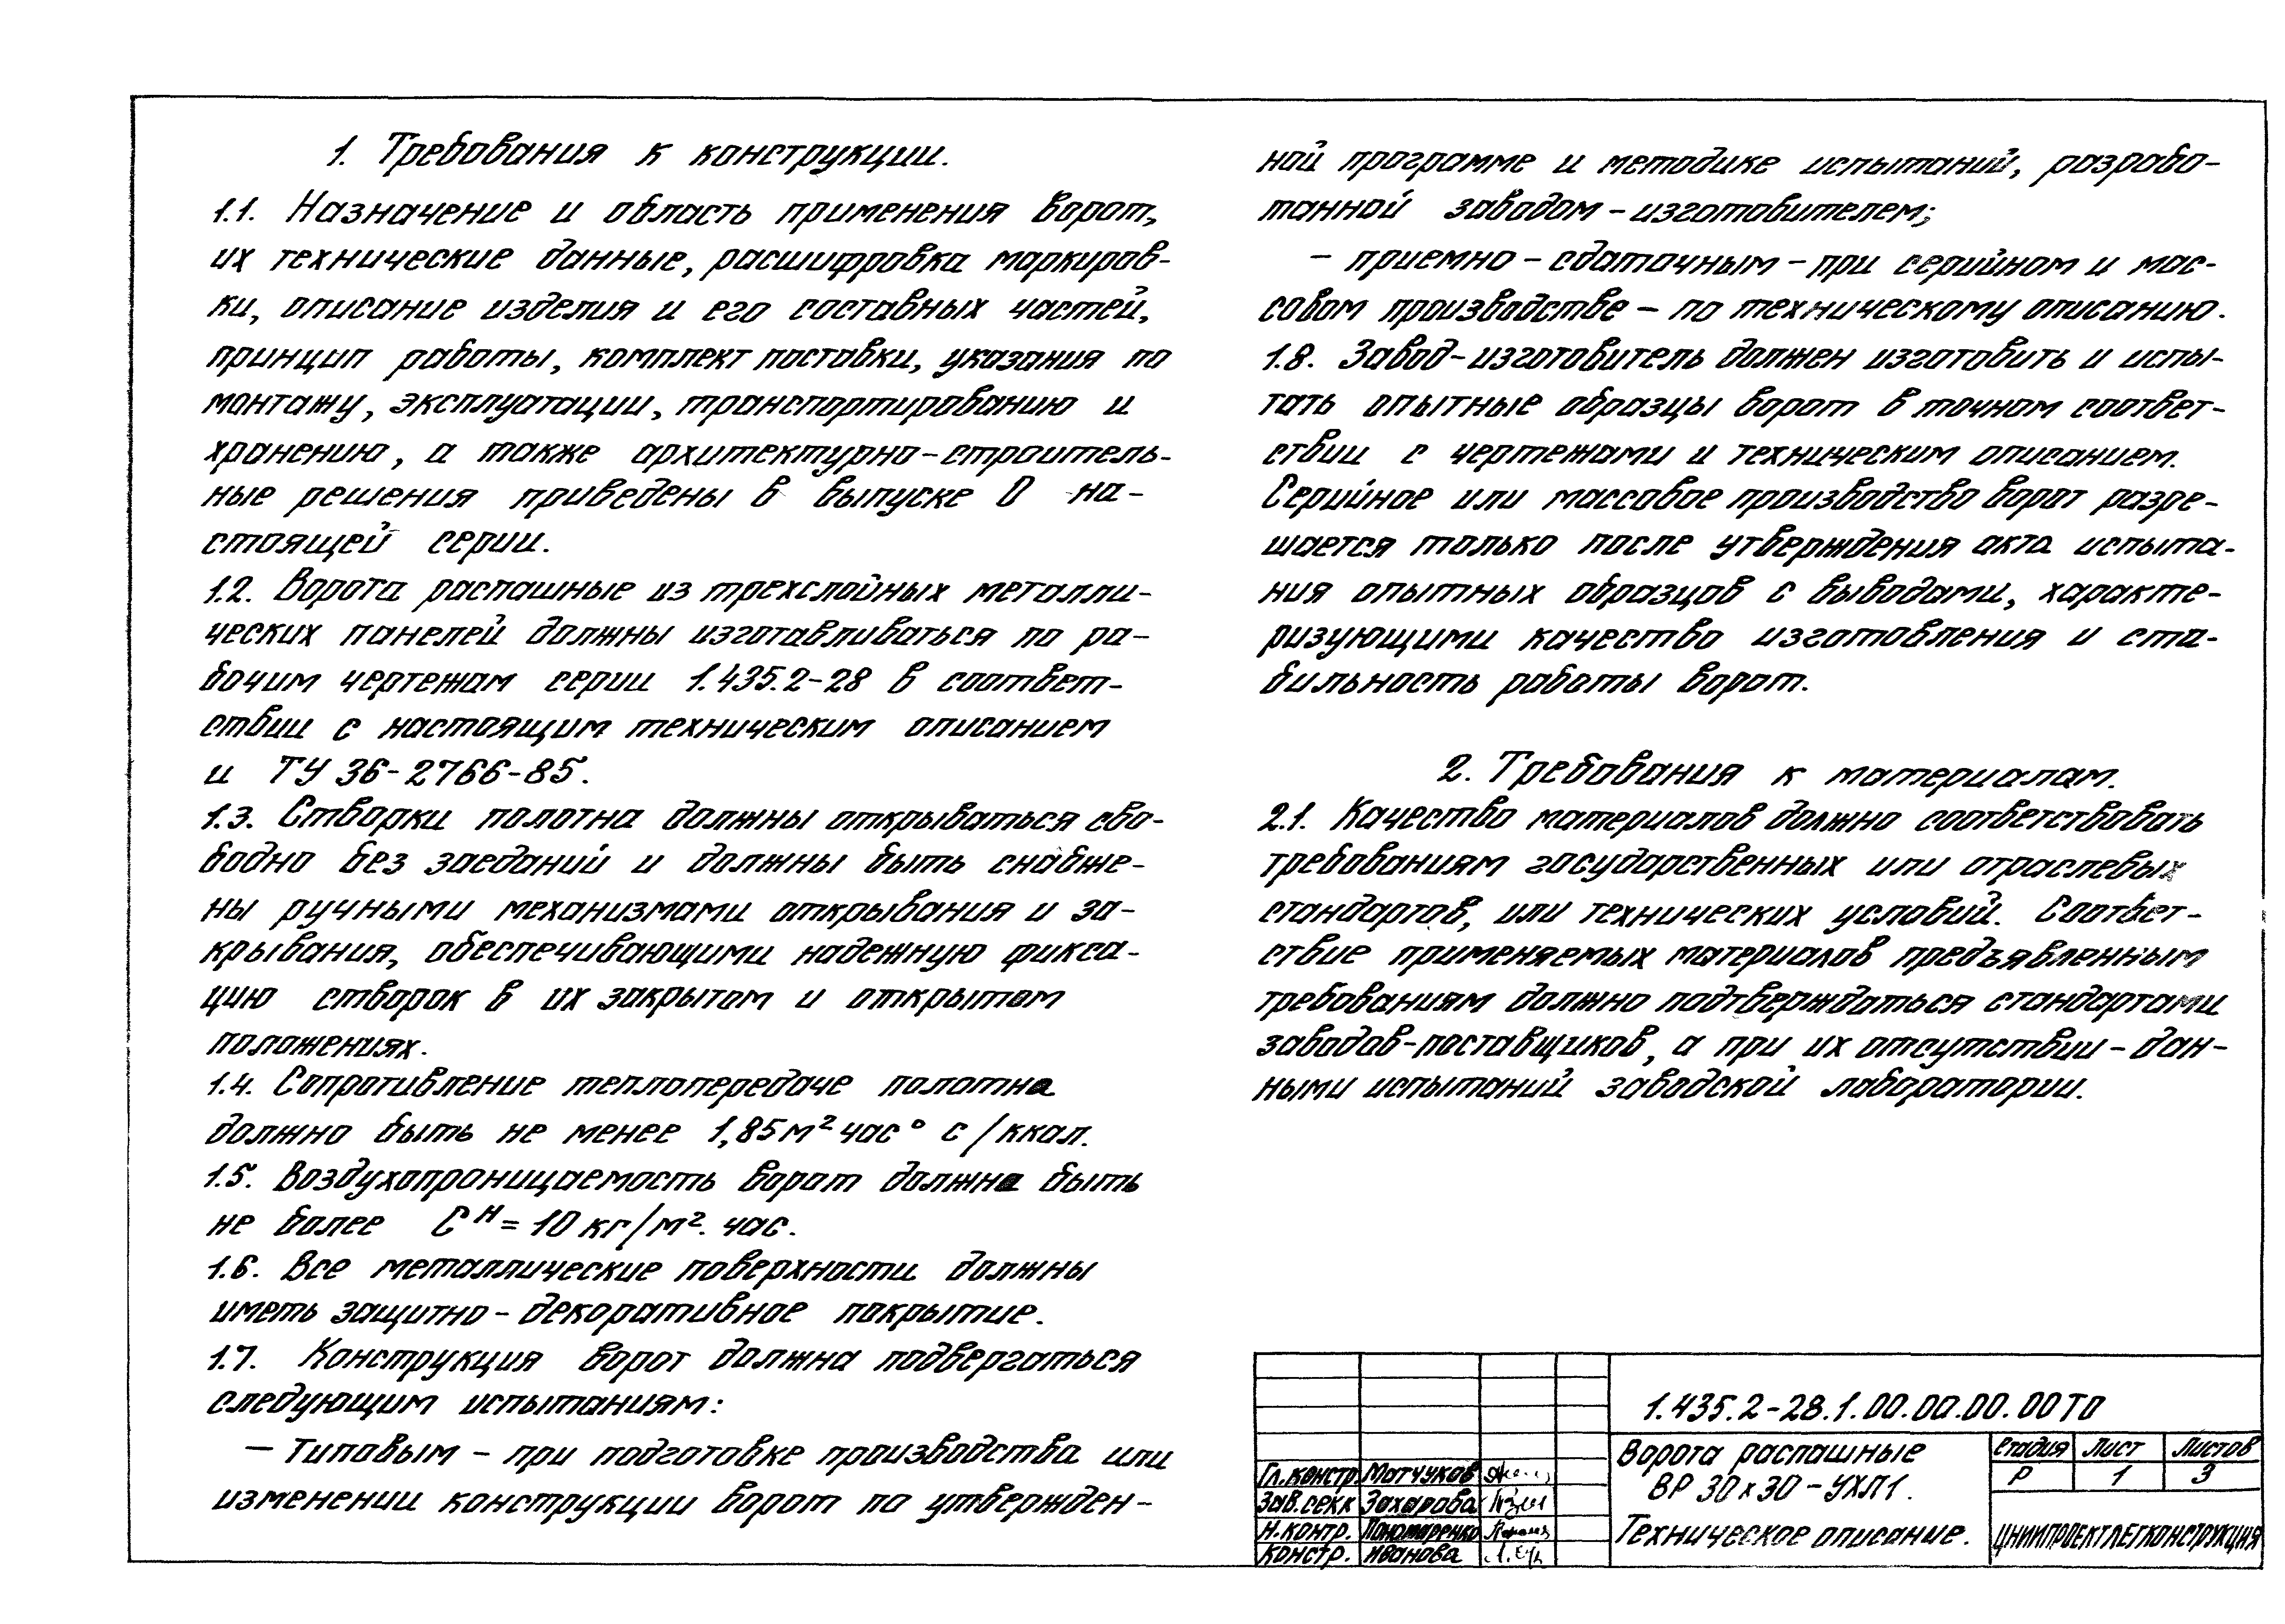 1. Требования к конструкции.
1.1. Назначение и область применения ворот,
их технические данные, расшифровка маркиров-
ки, описание изделия и его составных частей,
принцип работы, комплект поставки, указания по
монтажу, эксплуатации, транспортированию и
хранению, а также архитектурно-строитель-
ные решения приведены в выпуске 0 на-
стоящей серии.
1.2. Ворота распашные из трехслойных металли-
ческих панелей должны изготавливаться по ра-
бочим чертежам серии 1.435.2-28 в соответ-
ствии с настоящим техническим описанием
и ТУ 36-2766-85.
1.3. Створки полотна должны открываться сво-
бодно без заеданий и должны быть снабже-
ны ручными механизмами открывания и за-
крывания, обеспечивающими надежную фикса-
цию створок в их закрытом и открытом
положениях.
1.4. Сопротивление теплопередаче полотна
должно быть не менее 1,85 м² час° с /ккал.
1.5. Воздухопроницаемость ворот должна быть
не более Cᴴ = 10 кг/м². час.
1.6. Все металлические поверхности должны
иметь защитно-декоративное покрытие.
1.7. Конструкция ворот должна подвергаться
следующим испытаниям:
— типовым - при подготовке производства или
изменении конструкции ворот по утвержден-
ной программе и методике испытаний, разрабо-
танной заводом-изготовителем;
- приемно-сдаточным - при серийном и мас-
совом производстве - по техническому описанию.
1.8. Завод-изготовитель должен изготовить и испы-
тать опытные образцы ворот в точном соответ-
ствии с чертежами и техническим описанием.
Серийное или массовое производство ворот разре-
шается только после утверждения акта испыта-
ния опытных образцов с выводами, характе-
ризующими качество изготовления и ста-
бильность работы ворот.
2. Требования к материалам.
2.1. Качество материалов должно соответствовать
требованиям государственных или отраслевых
стандартов, или технических условий. Соответ-
ствие применяемых материалов предъявленным
требованиям должно подтверждаться стандартами
заводов-поставщиков, а при их отсутствии - дан-
ными испытаний заводской лаборатории.
1.435.2-28.1.00.00.00.00 ТО
Гл.констр. Матчуков
Зав.секк Захарова
Н.контр. Пономаренко
Констр. Иванова
Ворота распашные
ВР 30х30-УХЛ1.
Техническое описание.
Стадия Лист Листов
Р 1 3
ЦНИИПРОЕКТЛЕГКОНСТРУКЦИЯ